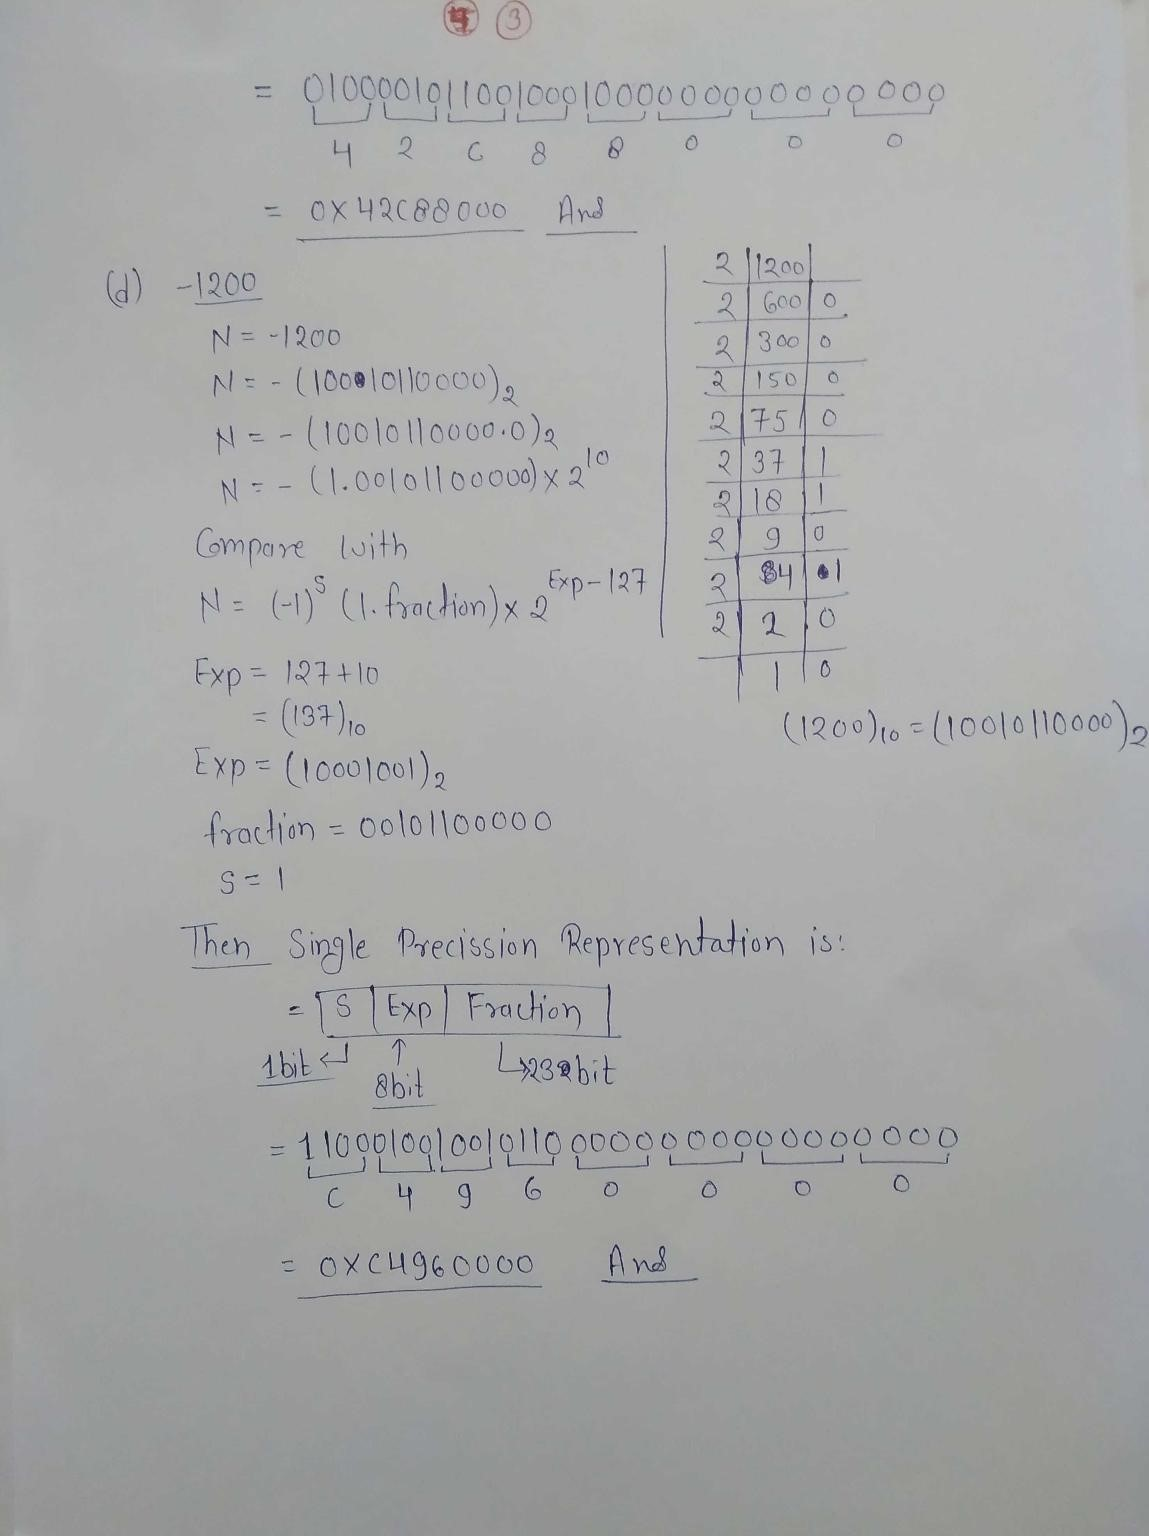 3
= 01000010110010001000000000000000
4 2 C 8 8 0 0 0
= 0X42C88000 Ans
(d) -1200
N = -1200
N = - (10010110000)₂
N = - (10010110000.0)₂
N = - (1.00101100000) x 2^10
Compare with
N = (-1)^S (1.fraction) x 2^Exp-127
Exp = 127+10
= (137)₁₀
Exp = (10001001)₂
fraction = 00101100000
S = 1
2 1200
2 600 0
2 300 0
2 150 0
2 75 0
2 37 1
2 18 1
2 9 0
2 4 1
2 2 0
1 0
(1200)₁₀ = (10010110000)₂
Then Single Precission Representation is:
= S Exp Fraction
1bit 8bit 23bit
= 11000100100101100000000000000000
C 4 9 6 0 0 0 0
= 0XC4960000 Ans